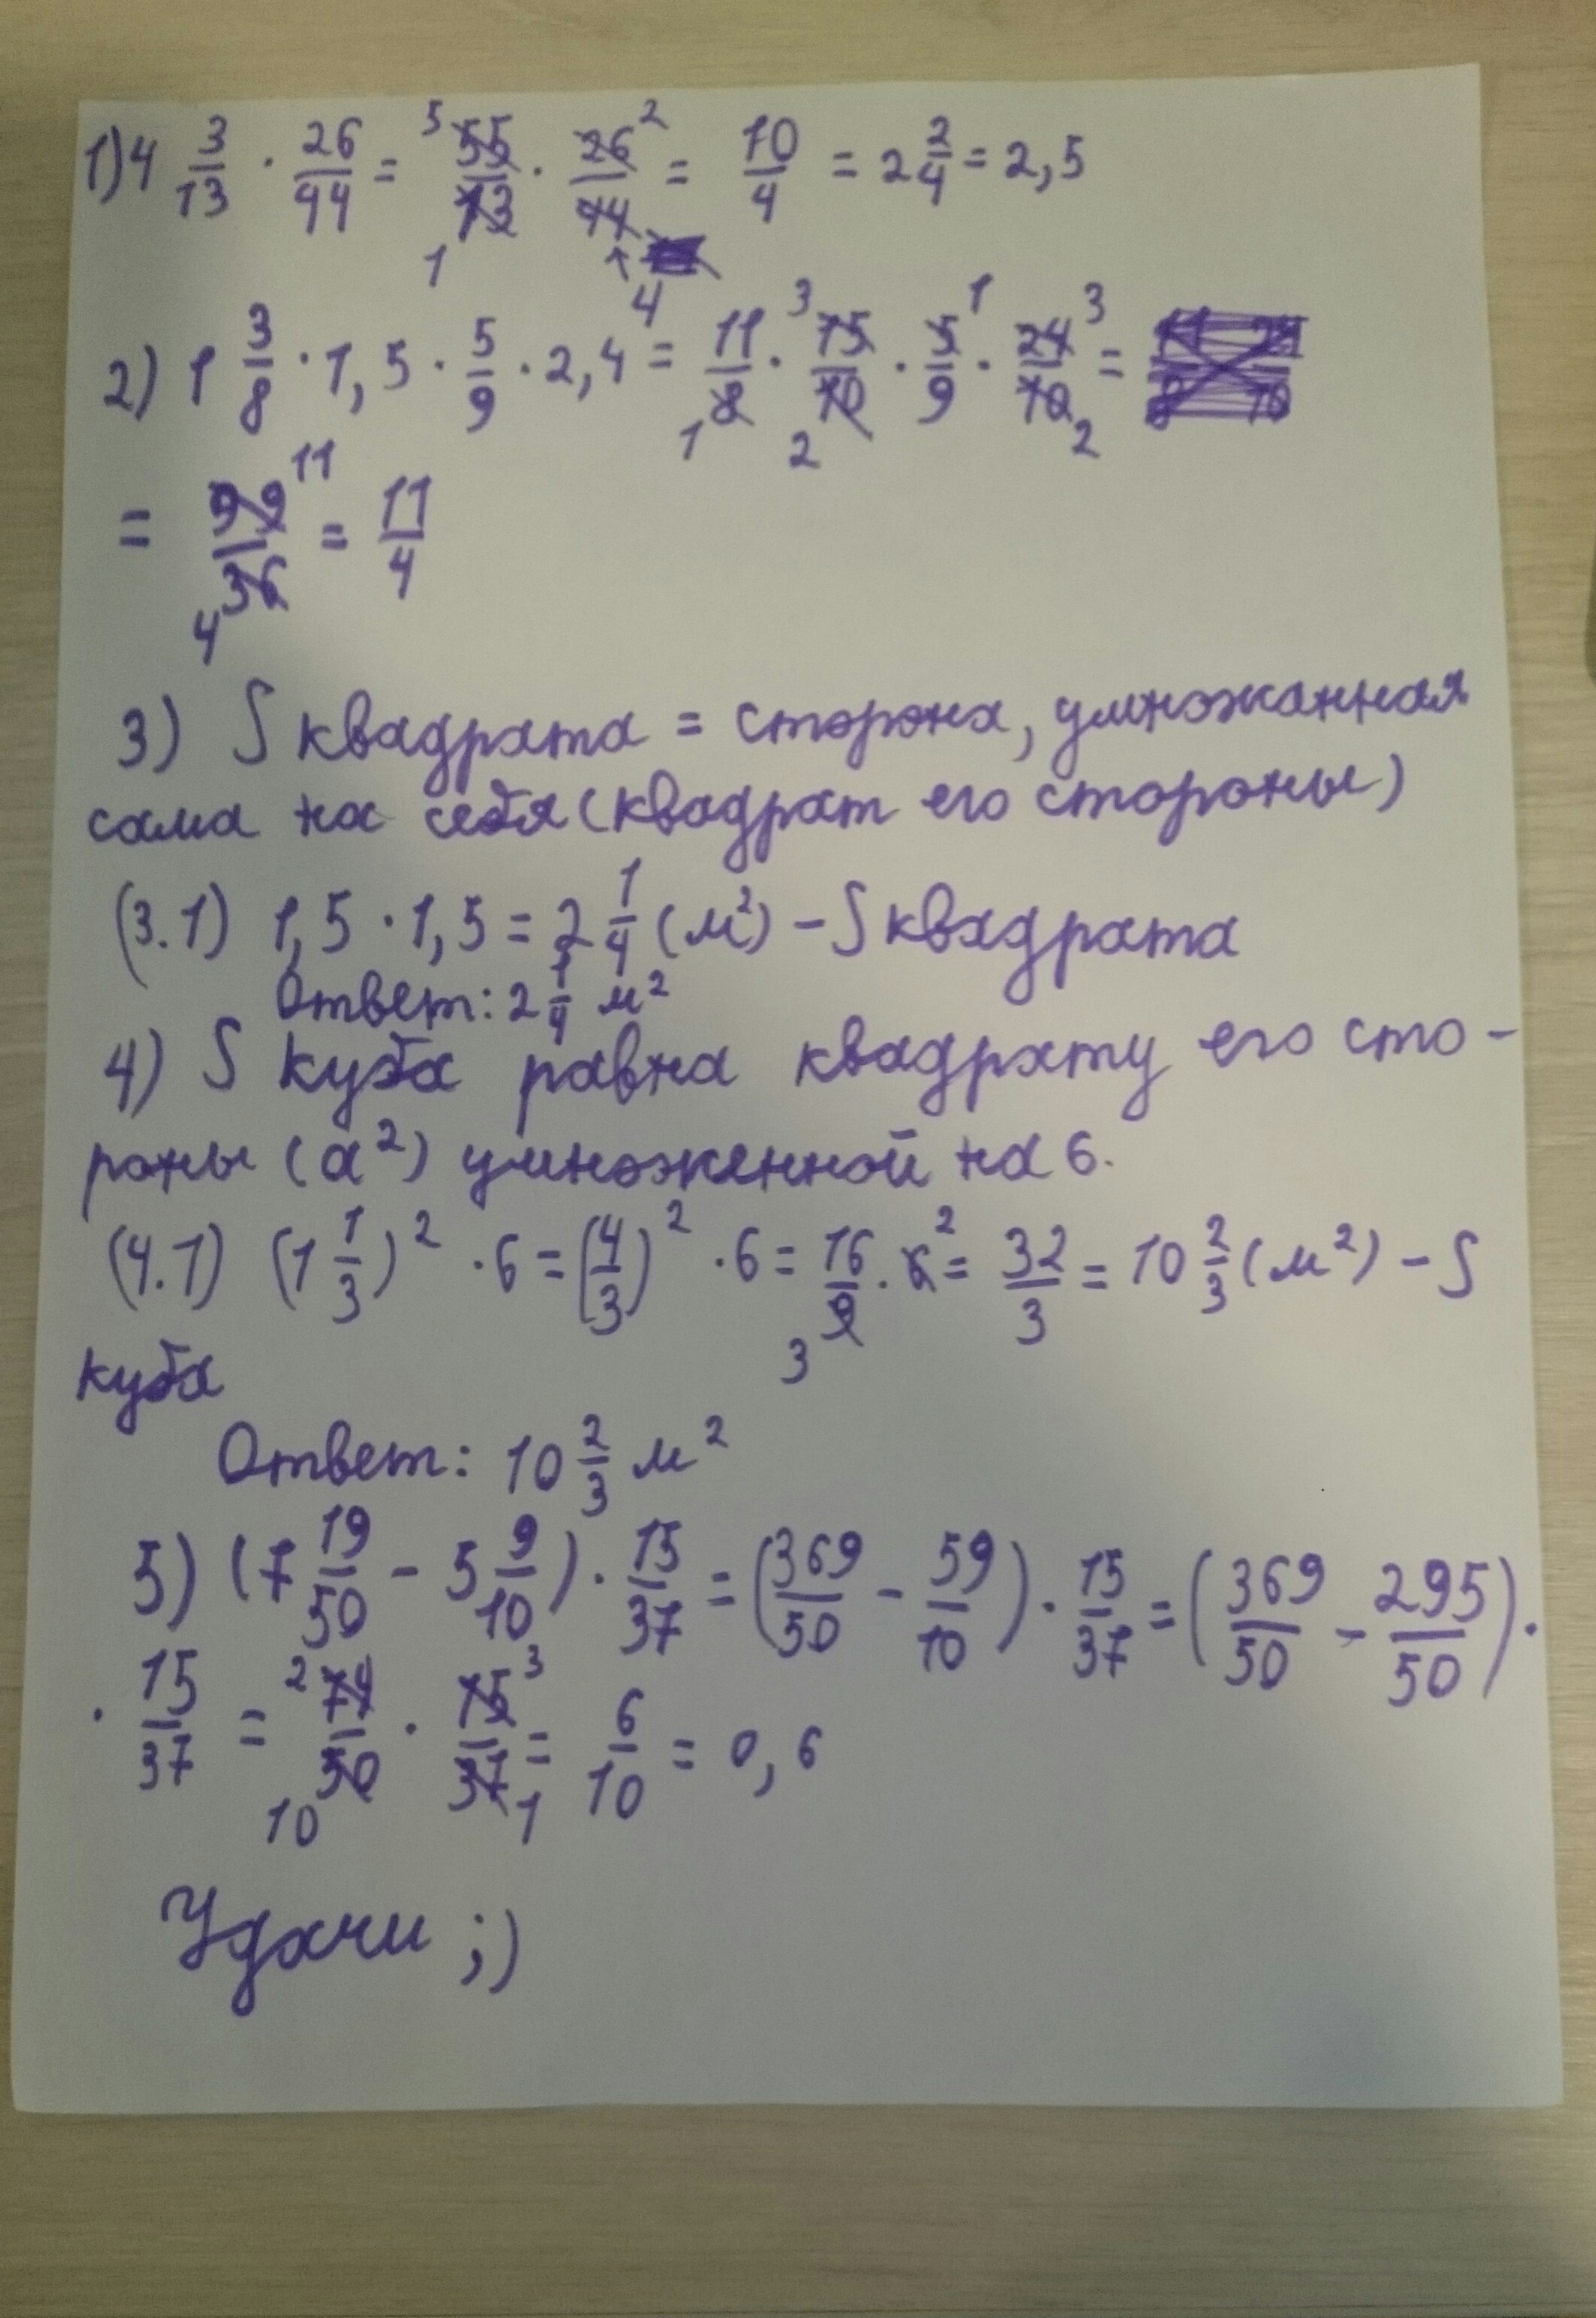 1) 4 3/13 · 26/44 = 55/13 · 26/44 = 10/4 = 2 2/4 = 2,5
2) 1 3/8 · 1,5 · 5/9 · 2,4 = 11/8 · 15/10 · 5/9 · 24/10 =
= 99/36 = 11/4
3) S квадрата = сторона, умножанная
сама на себя (квадрат его стороны)
(3.1) 1,5 · 1,5 = 2 1/4 (м²) – S квадрата
Ответ: 2 1/4 м²
4) S куба равна квадрату его сто-
роны (a²) умноженной на 6.
(4.1) (1 1/3)² · 6 = (4/3)² · 6 = 16/9 · 6 = 32/3 = 10 2/3 (м²) – S
куба
Ответ: 10 2/3 м²
5) (7 19/50 – 5 9/10) · 15/37 = (369/50 – 59/10) · 15/37 = (369/50 – 295/50) ·
· 15/37 = 74/50 · 15/37 = 6/10 = 0,6
Удачи ;)